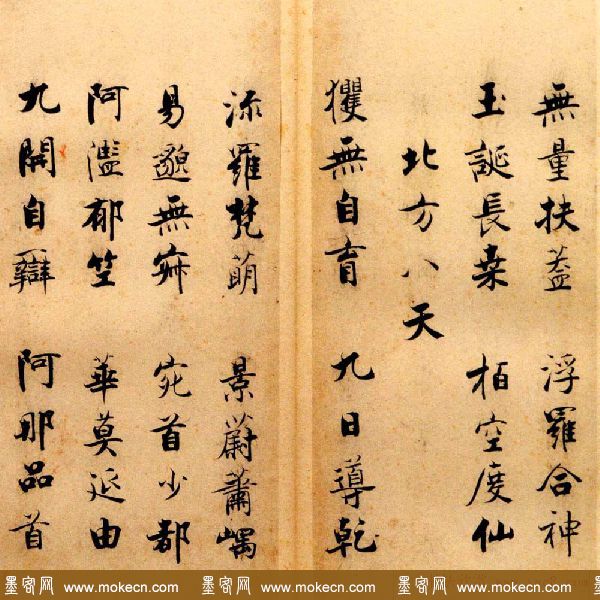 無量扶蓋 浮羅合神
玉誕長桒 栢空度仙
北方八天
玃無自育 九日導乾
流羅梵萌 景蔚蕭嵎
易邈無寂 宛首少都
阿濫郁竺 華莫延由
九開自辯 阿那品首
墨客网 www.mokecn.com 墨客网 www.mokecn.com 墨客网 www.mokecn.com